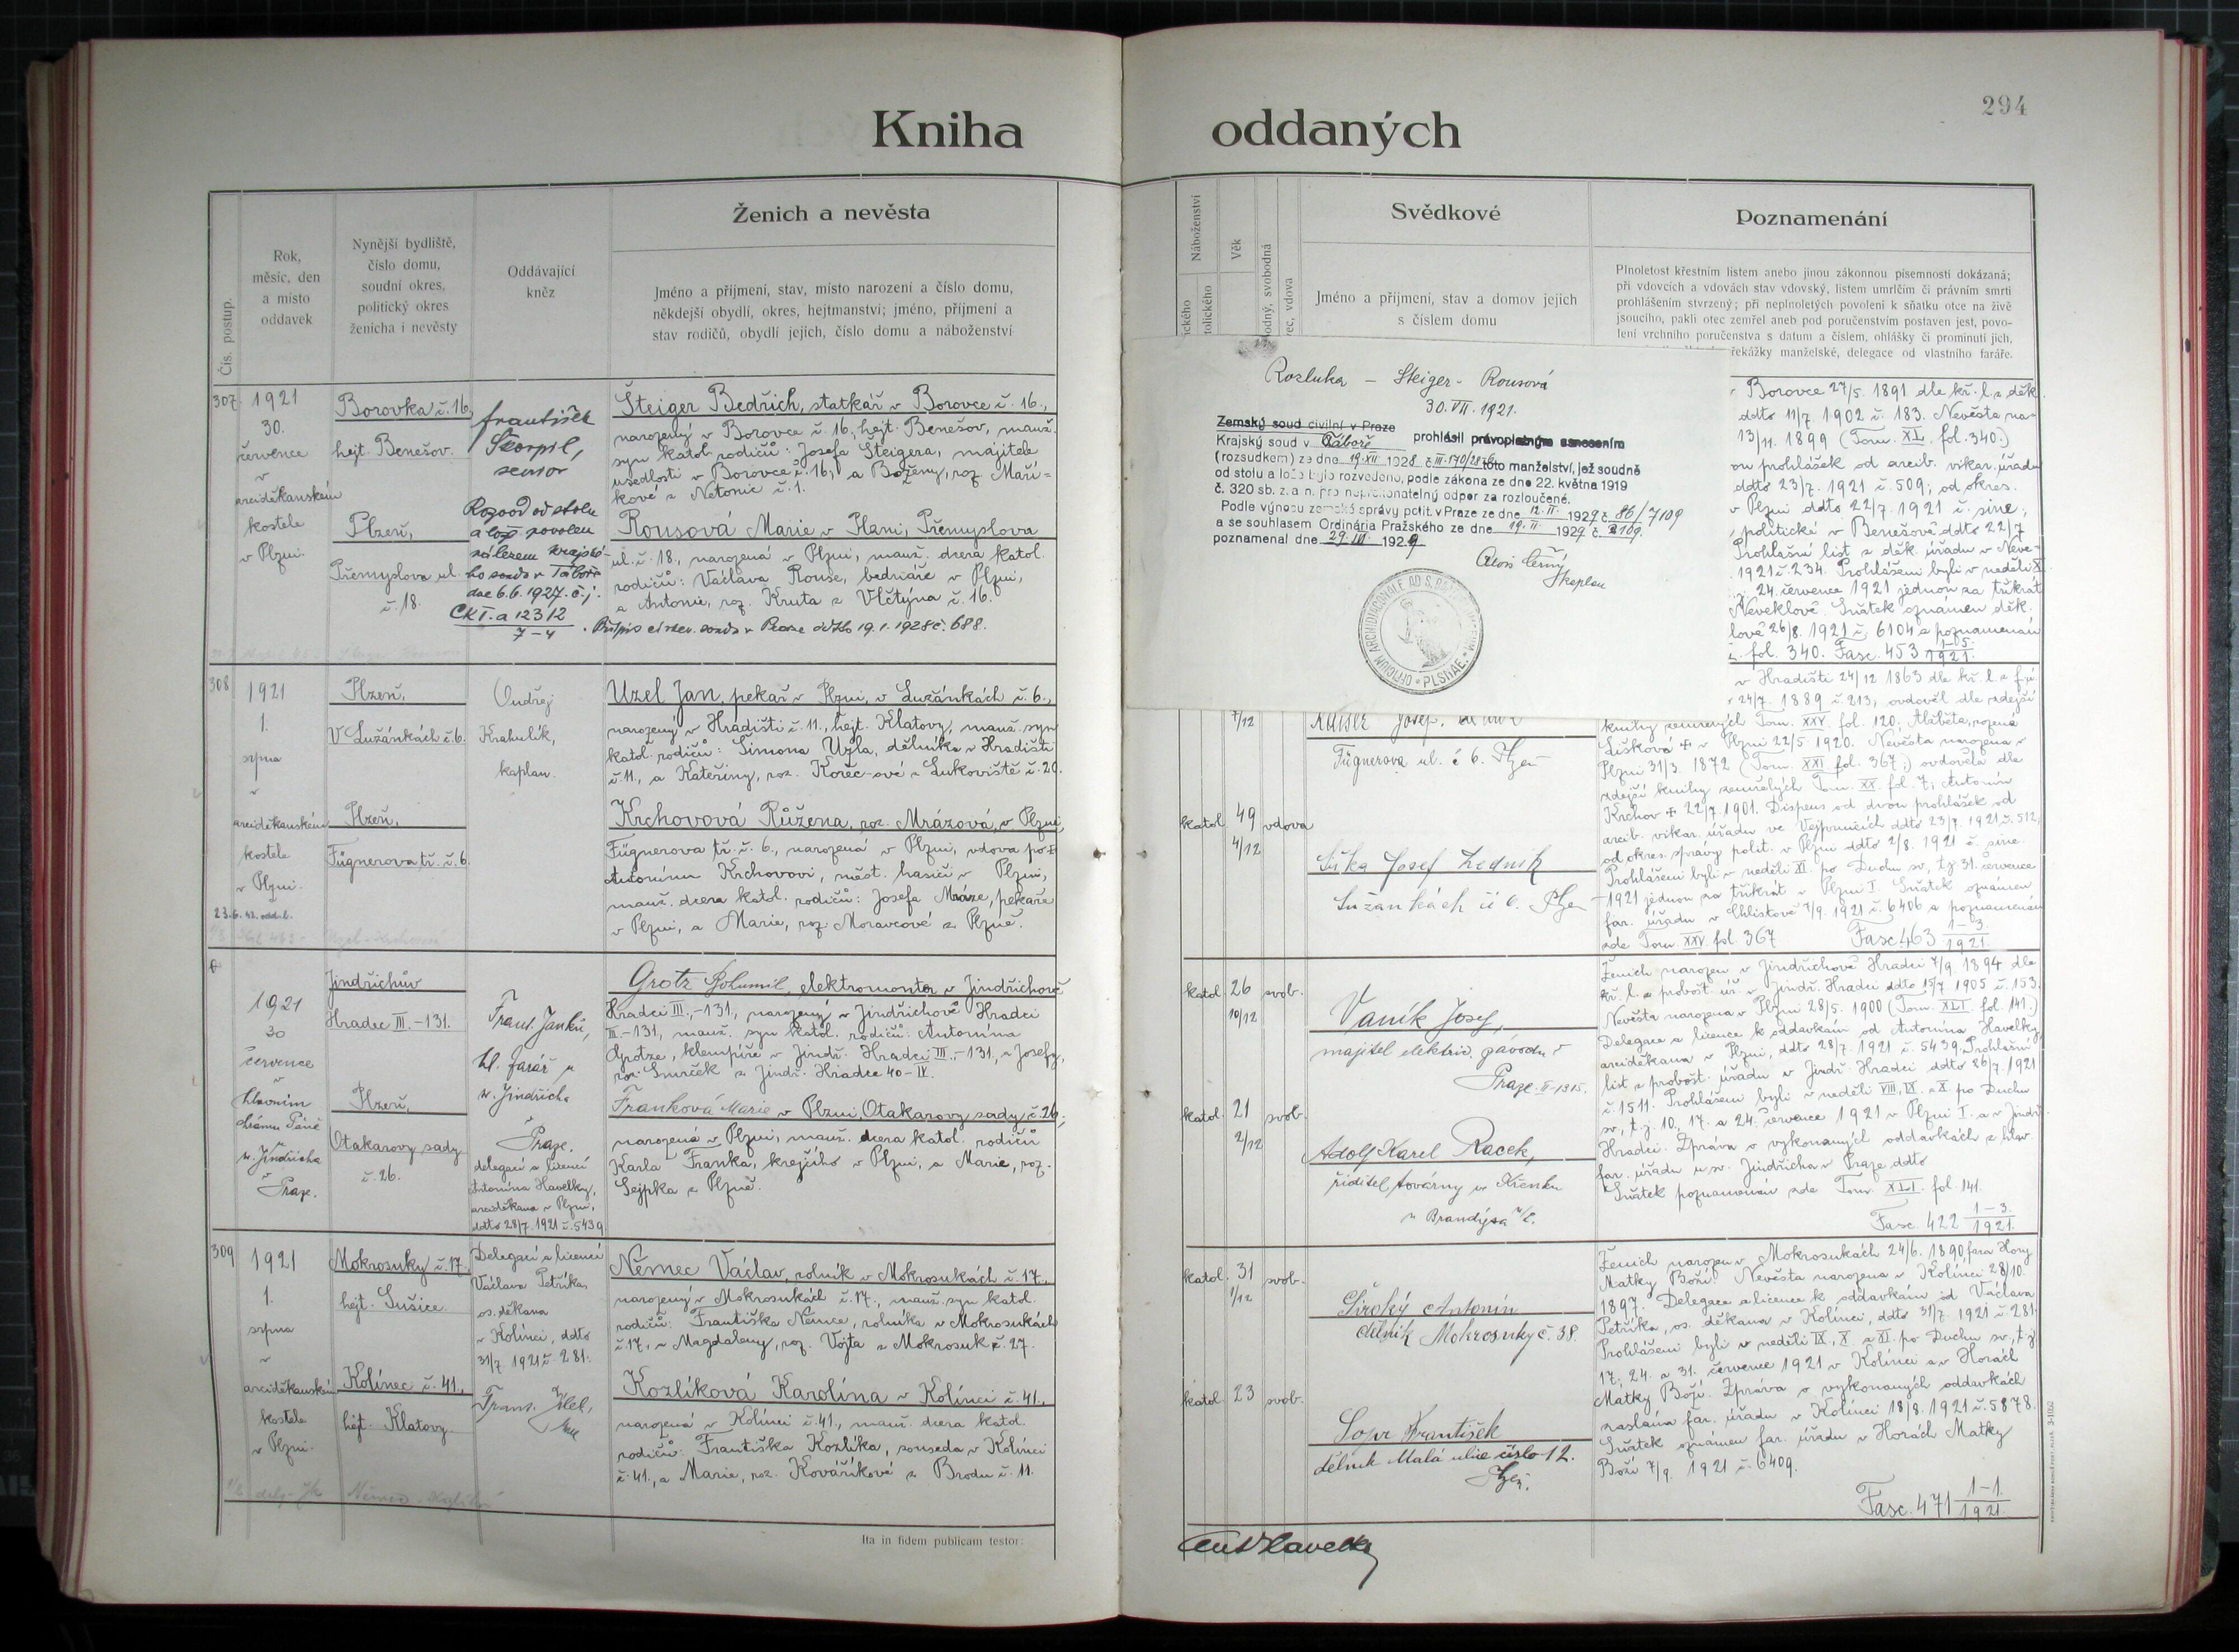 294
Kniha oddaných
Čís. postup.
Rok,
měsíc, den
a místo
oddavek
Nynější bydliště,
číslo domu,
soudní okres,
politický okres
ženicha i nevěsty
Oddávající
kněz
Ženich a nevěsta
Jméno a příjmení, stav, místo narození a číslo domu,
někdejší obydlí, okres, hejtmanství; jméno, příjmení a
stav rodičů, obydlí jejich, číslo domu a náboženství
307
1921
30.
července
v
arciděkanském
kostele
v Plzni.
Borovka č. 16,
hejt. Benešov.
Plzeň,
Přemyslova ul.
č. 18.
František
Škorpil,
senior
Rozvod od stolu
a lože povolen
nálezem krajské-
ho soudu v Táboře
dne 6.6.1927. č.j.
Ck I. a 123/2
7-4
Šteiger Bedřich, statkář v Borovce č. 16.,
narozený v Borovce č. 16, hejt. Benešov, manž.
syn katol. rodičů: Josefa Šteigera, majitele
usedlosti v Borovce č. 16, a Boženy, roz. Maří-
kové z Netonic č. 1.
Rousová Marie v Plzni, Přemyslova
ul. č. 18., narozená v Plzni, manž. dcera katol.
rodičů: Václava Rouse, bednáře v Plzni,
a Antonie, roz. Kruta z Vlčtýna č. 16.
308
1921
1.
srpna
v
arciděkanském
kostele
v Plzni.
Plzeň,
V Lužánkách č. 6.
Plzeň,
Fügnerova tř. č. 6.
Ondřej
Krahulík,
kaplan.
Uzel Jan, pekař v Plzni, v Lužánkách č. 6.,
narozený v Hradišti č. 11., hejt. Klatovy, manž. syn
katol. rodičů: Šimona Uzla, dělníka v Hradišti
č. 11., a Kateřiny, roz. Korec-ové z Lukoviště č. 20.
Krchovová Růžena, roz. Mrázová, v Plzni,
Fügnerova tř. č. 6., narozená v Plzni, vdova po
Antonínu Krchovovi, měst. hasiči v Plzni,
manž. dcera katol. rodičů: Josefa Mráze, pekaře
v Plzni, a Marie, roz. Moravcové z Plzně.
1921
30
července
v
hlavním
chrámu Páně
sv. Jindřicha
v Praze.
Jindřichův
Hradec III.-131.
Plzeň,
Otakarovy sady
č. 26.
Frant. Janků,
hl. farář u
sv. Jindřicha
v Praze,
delegací a licencí
Antonína Havelky,
arciděkana v Plzni,
ddto 28/7. 1921 č. 5439.
Grotz Bohumil, elektromontér v Jindřichově
Hradci III.-131, narozený v Jindřichově Hradci
III.-131, manž. syn katol. rodičů: Antonína
Grotze, klempíře v Jindř. Hradci III.-131, a Josefy,
roz. Smrček z Jindř. Hradce 40-IV.
Franková Marie v Plzni, Otakarovy sady, č. 26,
narozená v Plzni, manž. dcera katol. rodičů
Karla Franka, krejčího v Plzni, a Marie, roz.
Sejpka z Plzně.
309
1921
1.
srpna
v
arciděkanském
kostele
v Plzni.
Mokrosuky č. 17.
hejt. Sušice.
Kolinec č. 41.,
hejt. Klatovy.
Delegací a licencí
Václava Petříka,
os. děkana
v Kolinci, ddto
31/7. 1921 č. 281:
Němec Václav, rolník v Mokrosukách č. 17.,
narozený v Mokrosukách č. 17., manž. syn katol.
rodičů: Františka Němce, rolníka v Mokrosukách
č. 17., a Magdaleny, roz. Vojta z Mokrosuk č. 27.
Kozlíková Karolína v Kolinci č. 41.,
narozená v Kolinci č. 41., manž. dcera katol.
rodičů: Františka Kozlíka, souseda v Kolinci
č. 41., a Marie, roz. Kováříkové z Brodu č. 11.
Ita in fidem publicam testor:
Náboženství
Věk
Svědkové
Jméno a příjmení, stav a domov jejich
s číslem domu
Poznamenání
Plnoletost křestním listem anebo jinou zákonnou písemností dokázaná;
při vdovcích a vdovách stav vdovský, listem úmrlčím či právním smrti
prohlášením stvrzený; při neplnoletých povolení k sňatku otce na živě
jsoucího, pakli otec zemřel aneb pod poručenstvím postaven jest, povo-
lení vrchního poručenstva s datum a číslem, ohlášky či prominutí jich,
řekážky manželské, delegace od vlastního faráře.
Rozluka - Steiger - Rousová
30. VII. 1921.
Zemský soud civilní v Praze
Krajský soud v Táboře prohlásil právoplatným usnesením
(rozsudkem) ze dne 19.XII 1928 toto manželství, jež soudně
od stolu a lože bylo rozvedeno, podle zákona ze dne 22. května 1919
č. 320 sb. z. a n. pro nepřekonatelný odpor za rozloučené.
Podle výnosu zemské správy polit. v Praze ze dne 12. II. 1929 č. 86/7109
a se souhlasem Ordinária Pražského ze dne 19. II 1929 č. 2109.
poznamenal dne 29. III 1929
Alois Černý
kaplan
Borovce 27/5. 1891 dle kř. l. z děk.
ddto 11/7. 1902 č. 183. Nevěsta na-
13/11. 1899 (Tom. XL. fol. 340.)
prohlášek od arcib. vikar. úřadu
ddto 23/7. 1921 č. 509; od okres.
v Plzni ddto 22/7. 1921 č. sine;
politické v Benešově ddto 22/7.
Prohlašní list z děk. úřadu v Neve-
1921 č. 234. Prohlášení byli v neděli X.
24. července 1921 jednou za třikrát
Neveklově. Sňatek oznámen děk.
26/8. 1921 č. 6104 a poznamenán
fol. 340. Fasc. 453 1-05. 1921.
7/12
Kaiser Josef,
Fügnerova ul. č 6. Plzeň
katol. 49 4/12 vdova
Josef Zedník
Lužánkách č 6.
v Hradišti 24/12 1863 dle kř. l. z f. ú.
24/7. 1889 č. 213, ovdověl dle zdejší
knihy zemřelých Tom. XXV. fol. 120; Alžběta, rozená
Lišková + v Plzni 22/5. 1920. Nevěsta narozena v
Plzni 31/3. 1872 (Tom. XXI fol. 367;) ovdověla dle
zdejší knihy zemřelých Tom. XX. fol. 7; Antonín
Krchov + 22/7. 1901. Dispens od dvou prohlášek od
arcib. vikar. úřadu ve Vejprnicích ddto 23/7. 1921 č. 512,
od okres. správy polit. v Plzni ddto 2/8. 1921 č. sine.
Prohlášeni byli v neděli XI. po Duchu sv., t.j. 31. července
1921 jednou za třikrát v Plzni I. Sňatek oznámen
far. úřadu v Chlistově 7/9. 1921 č. 6406 a poznamenán
zde Tom. XXV. fol. 367 Fasc 463 1-3. 1921.
katol. 26 10/12 svob.
Vaník Josef,
majitel elektric. závodu v
Praze II-1315.
katol. 21 2/12 svob.
Adolf Karel Racek,
ředitel továrny
u Brandýsa n/L.
Ženich narozen v Jindřichově Hradci 7/9. 1894 dle
kř. l. z probošt. úř. v Jindř. Hradci ddto 15/7. 1905 č. 153.
Nevěsta narozena v Plzni 28/5. 1900 (Tom. XLI. fol. 141.)
Delegace a licence k oddavkám od Antonína Havelky,
arciděkana v Plzni, ddto 28/7. 1921 č. 5439. Prohlašní
list z probošt. úřadu v Jindř. Hradci ddto 26/7. 1921
č. 1511. Prohlášeni byli v neděli VIII., IX. a X. po Duchu
sv., t.j. 10., 17. a 24. července 1921 v Plzni I. a v Jindř.
Hradci. Zpráva o vykonaných oddavkách z hlav.
far. úřadu u sv. Jindřicha v Praze ddto
Sňatek poznamenán zde Tom. XLI. fol. 141.
Fasc. 422 1-3. 1921.
katol. 31 1/12 svob.
Široký Antonín
dělník Mokrosuky č. 38.
katol. 23 svob.
František
dělník Malá ulice číslo 12.
Plzeň.
Ženich narozen v Mokrosukách 24/6. 1890, fara Hory
Matky Boží. Nevěsta narozena v Kolinci 28/10.
1897. Delegace a licence k oddavkám od Václava
Petříka, os. děkana v Kolinci, ddto 31/7. 1921 č. 281.
Prohlášeni byli v neděli IX., X. a XI. po Duchu sv., t.j.
17., 24. a 31. července 1921 v Kolinci a v Horách
Matky Boží. Zpráva o vykonaných oddavkách
zaslána far. úřadu v Kolinci 18/8. 1921 č. 5878.
Sňatek oznámen far. úřadu v Horách Matky
Boží 7/9. 1921 č. 6409.
Fasc. 471 1-1. 1921.
Ant Havelka